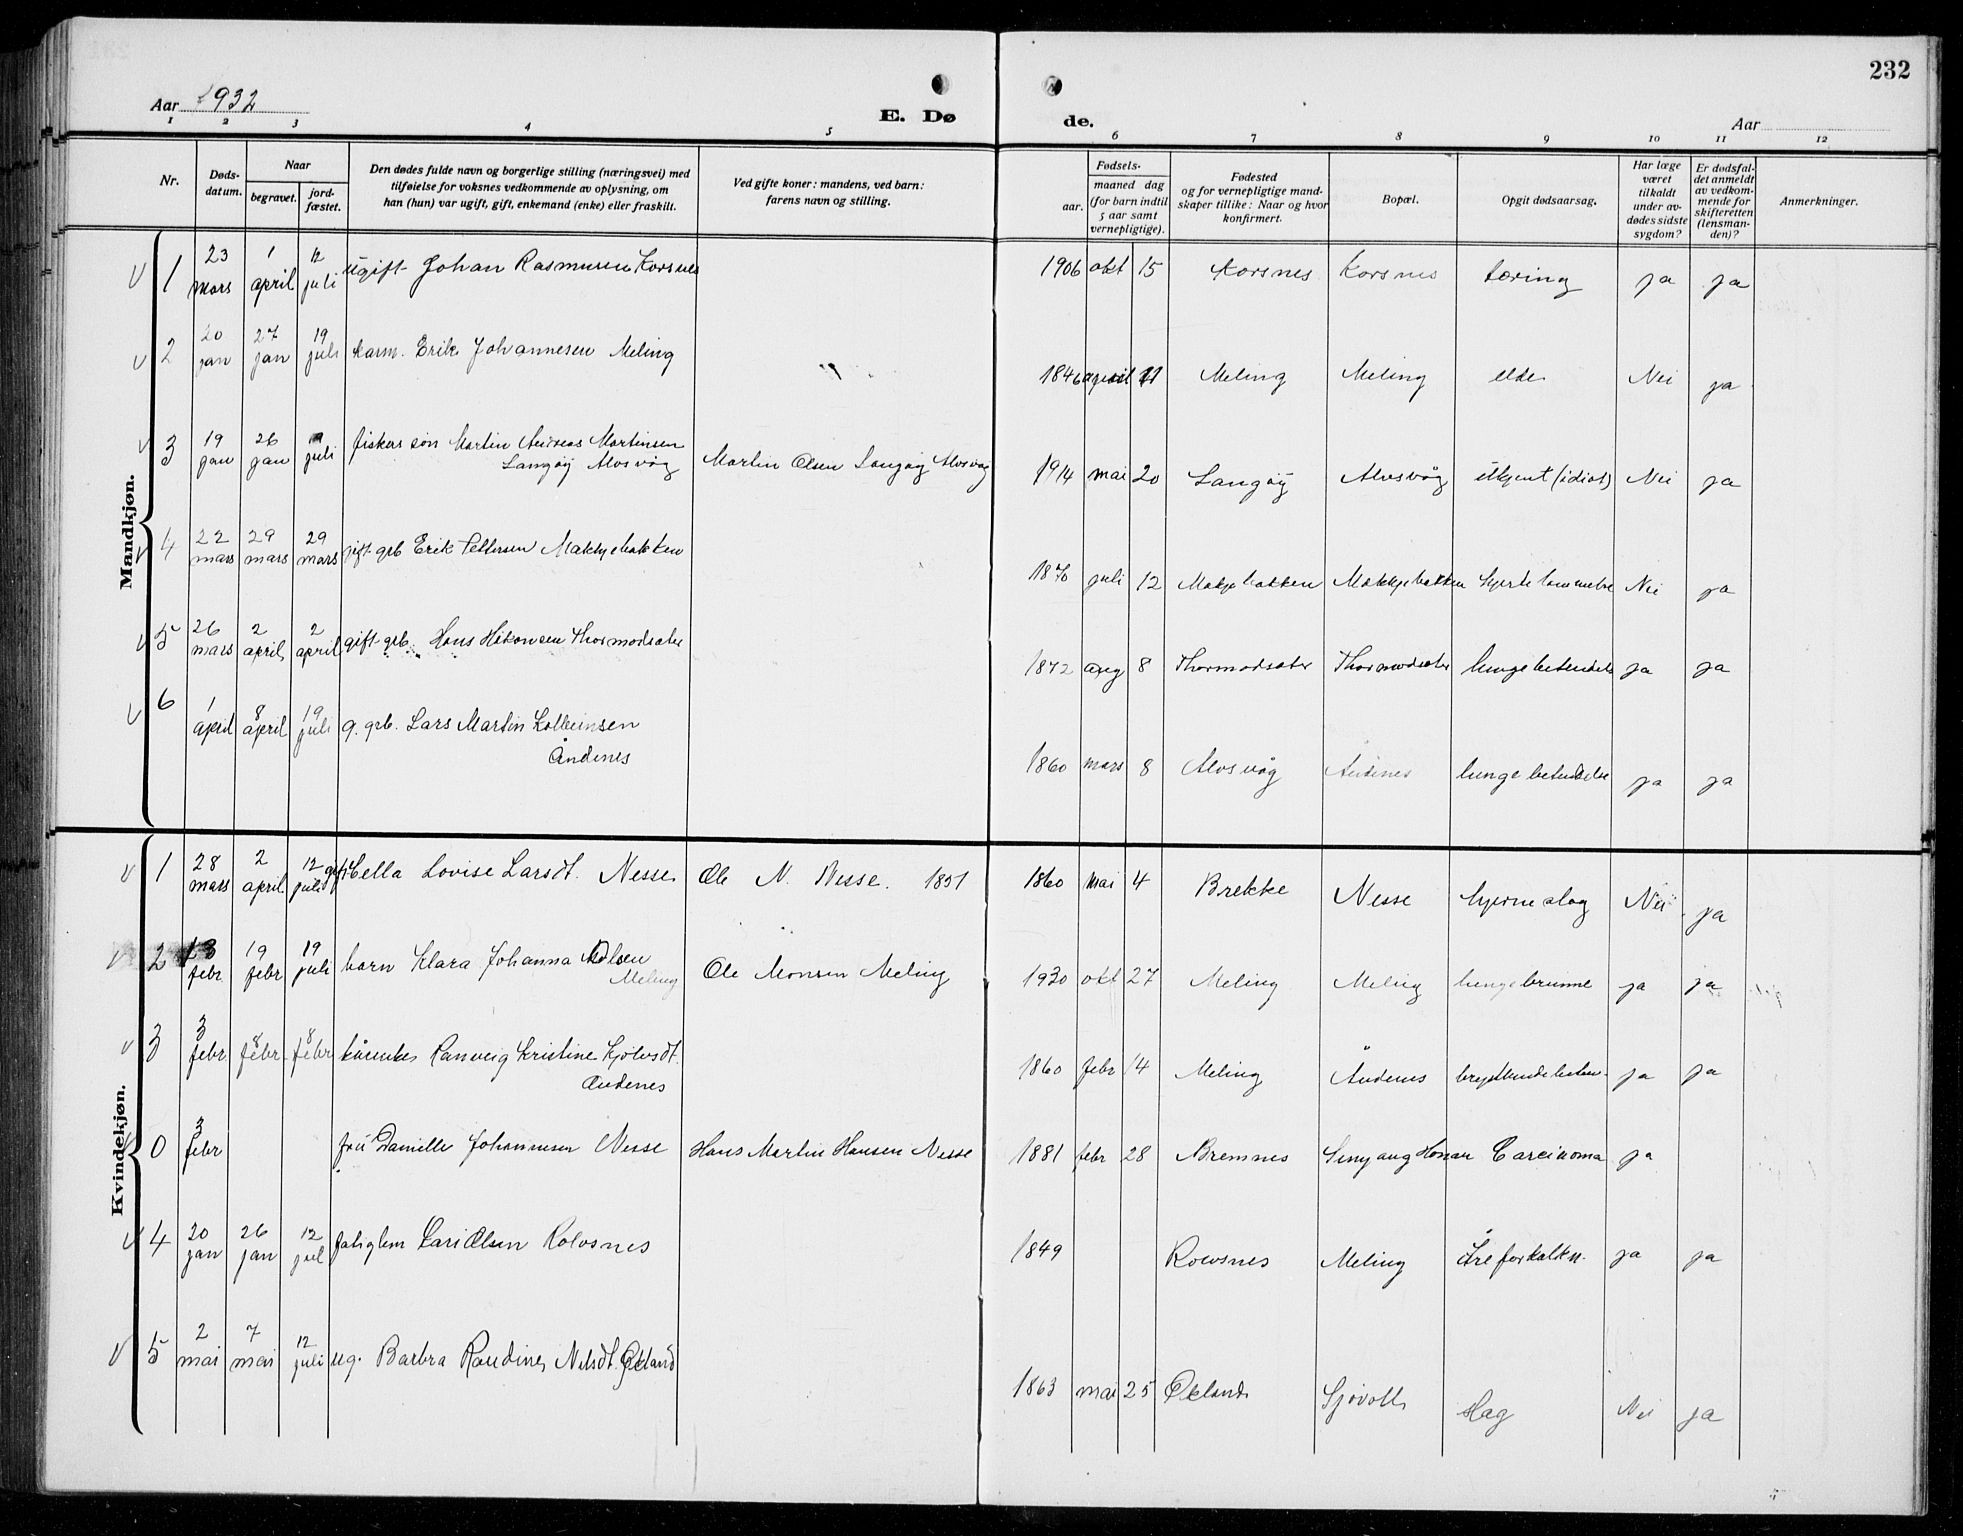 232
Aar 1932
E. Dø
de.
Aar
1 2 3 4 5 6 7 8 9 10 11 12
Nr.
Døds-
datum.
Naar
begravet.
jord-
fæstet.
Den dødes fulde navn og borgerlige stilling (næringsvei) med
tilføielse for voksnes vedkommende av oplysning, om
han (hun) var ugift, gift, enkemand (enke) eller fraskilt.
Ved gifte koner: mandens, ved barn:
farens navn og stilling.
Fødsels-
aar.
maaned dag
(for barn indtil
5 aar samt
vernepligtige).
Fødested
og for vernepligtige mand-
skaper tillike: Naar og hvor
konfirmert.
Bopæl.
Opgit dødsaarsag.
Har læge
været
tilkaldt
under av-
dødes sidste
sygdom?
Er dødsfal-
det anmeldt
av vedkom-
mende for
skifteretten
(lensman-
den)?
Anmerkninger.
Mandkjøn.
1 23 mars 1 april 12 juli ugift Johan Rasmusen Korsnes 1906 okt 15 Korsnes Korsnes tæring ja ja
2 20 jan 27 jan 19 juli karm. Erik Johannesen Meling 1846 april 11 Meling Meling elde Nei ja
3 19 jan 26 jan juli fiskar søn Martin Andreas Martinsen
Langøy Alvsvåg Martin Olsen Langøy Alvsvåg 1914 mai 20 Langøy Alvsvåg ukjent (idiot) Nei ja
4 22 mars 29 mars 29 mars gift grb Erik Pettersen Møkkjebakken 1870 juli 12 Møkjebakken Møkkjebakken hjertelammelse Nei ja
5 26 mars 2 april 2 april gift grb. Hans Håkonsen Thormodsæter 1872 aug 8 Thormodsæter Thormodsæter lungebetendels ja ja
6 1 april 8 april 19 juli g. grb. Lars Martin Kolbeinsen
Åndenes 1860 mars 8 Alvsvåg Åndenes lungebetendelse ja ja
Kvindekjøn.
1 28 mars 2 april 12 juli gift Hella Lovise Larsdt. Nesse Ole N. Nesse. 1851 1860 mai 4 Brekke Nesse hjerneslag Nei ja
2 13 febr 19 febr 19 juli barn Klara Johanna Olsen
Meling Ole Monsen Meling 1930 okt 27 Meling Meling lungebrunne ja ja
3 3 febr 8 febr 8 febr kårenke Ranveig Kristine Kjølvsdt.
Åndenes 1860 febr 14 Meling Åndenes brysthindebeten. ja ja
0 3 febr fru Danielle Johannesen Nesse Hans Martin Hansen Nesse 1881 febr 28 Bremnes Sinyang Honan Carcinoma ja
4 20 jan 26 jan 12 jul fatiglem Kari Olsen Rolvsnes 1849 Rolvsnes Meling Åreforkalkn. ja ja
5 2 mai 7 mai 12 juli ug. Barbra Raudine Nilsdt. Økland 1863 mai 25 Økland Sjøvoll slag Nei ja